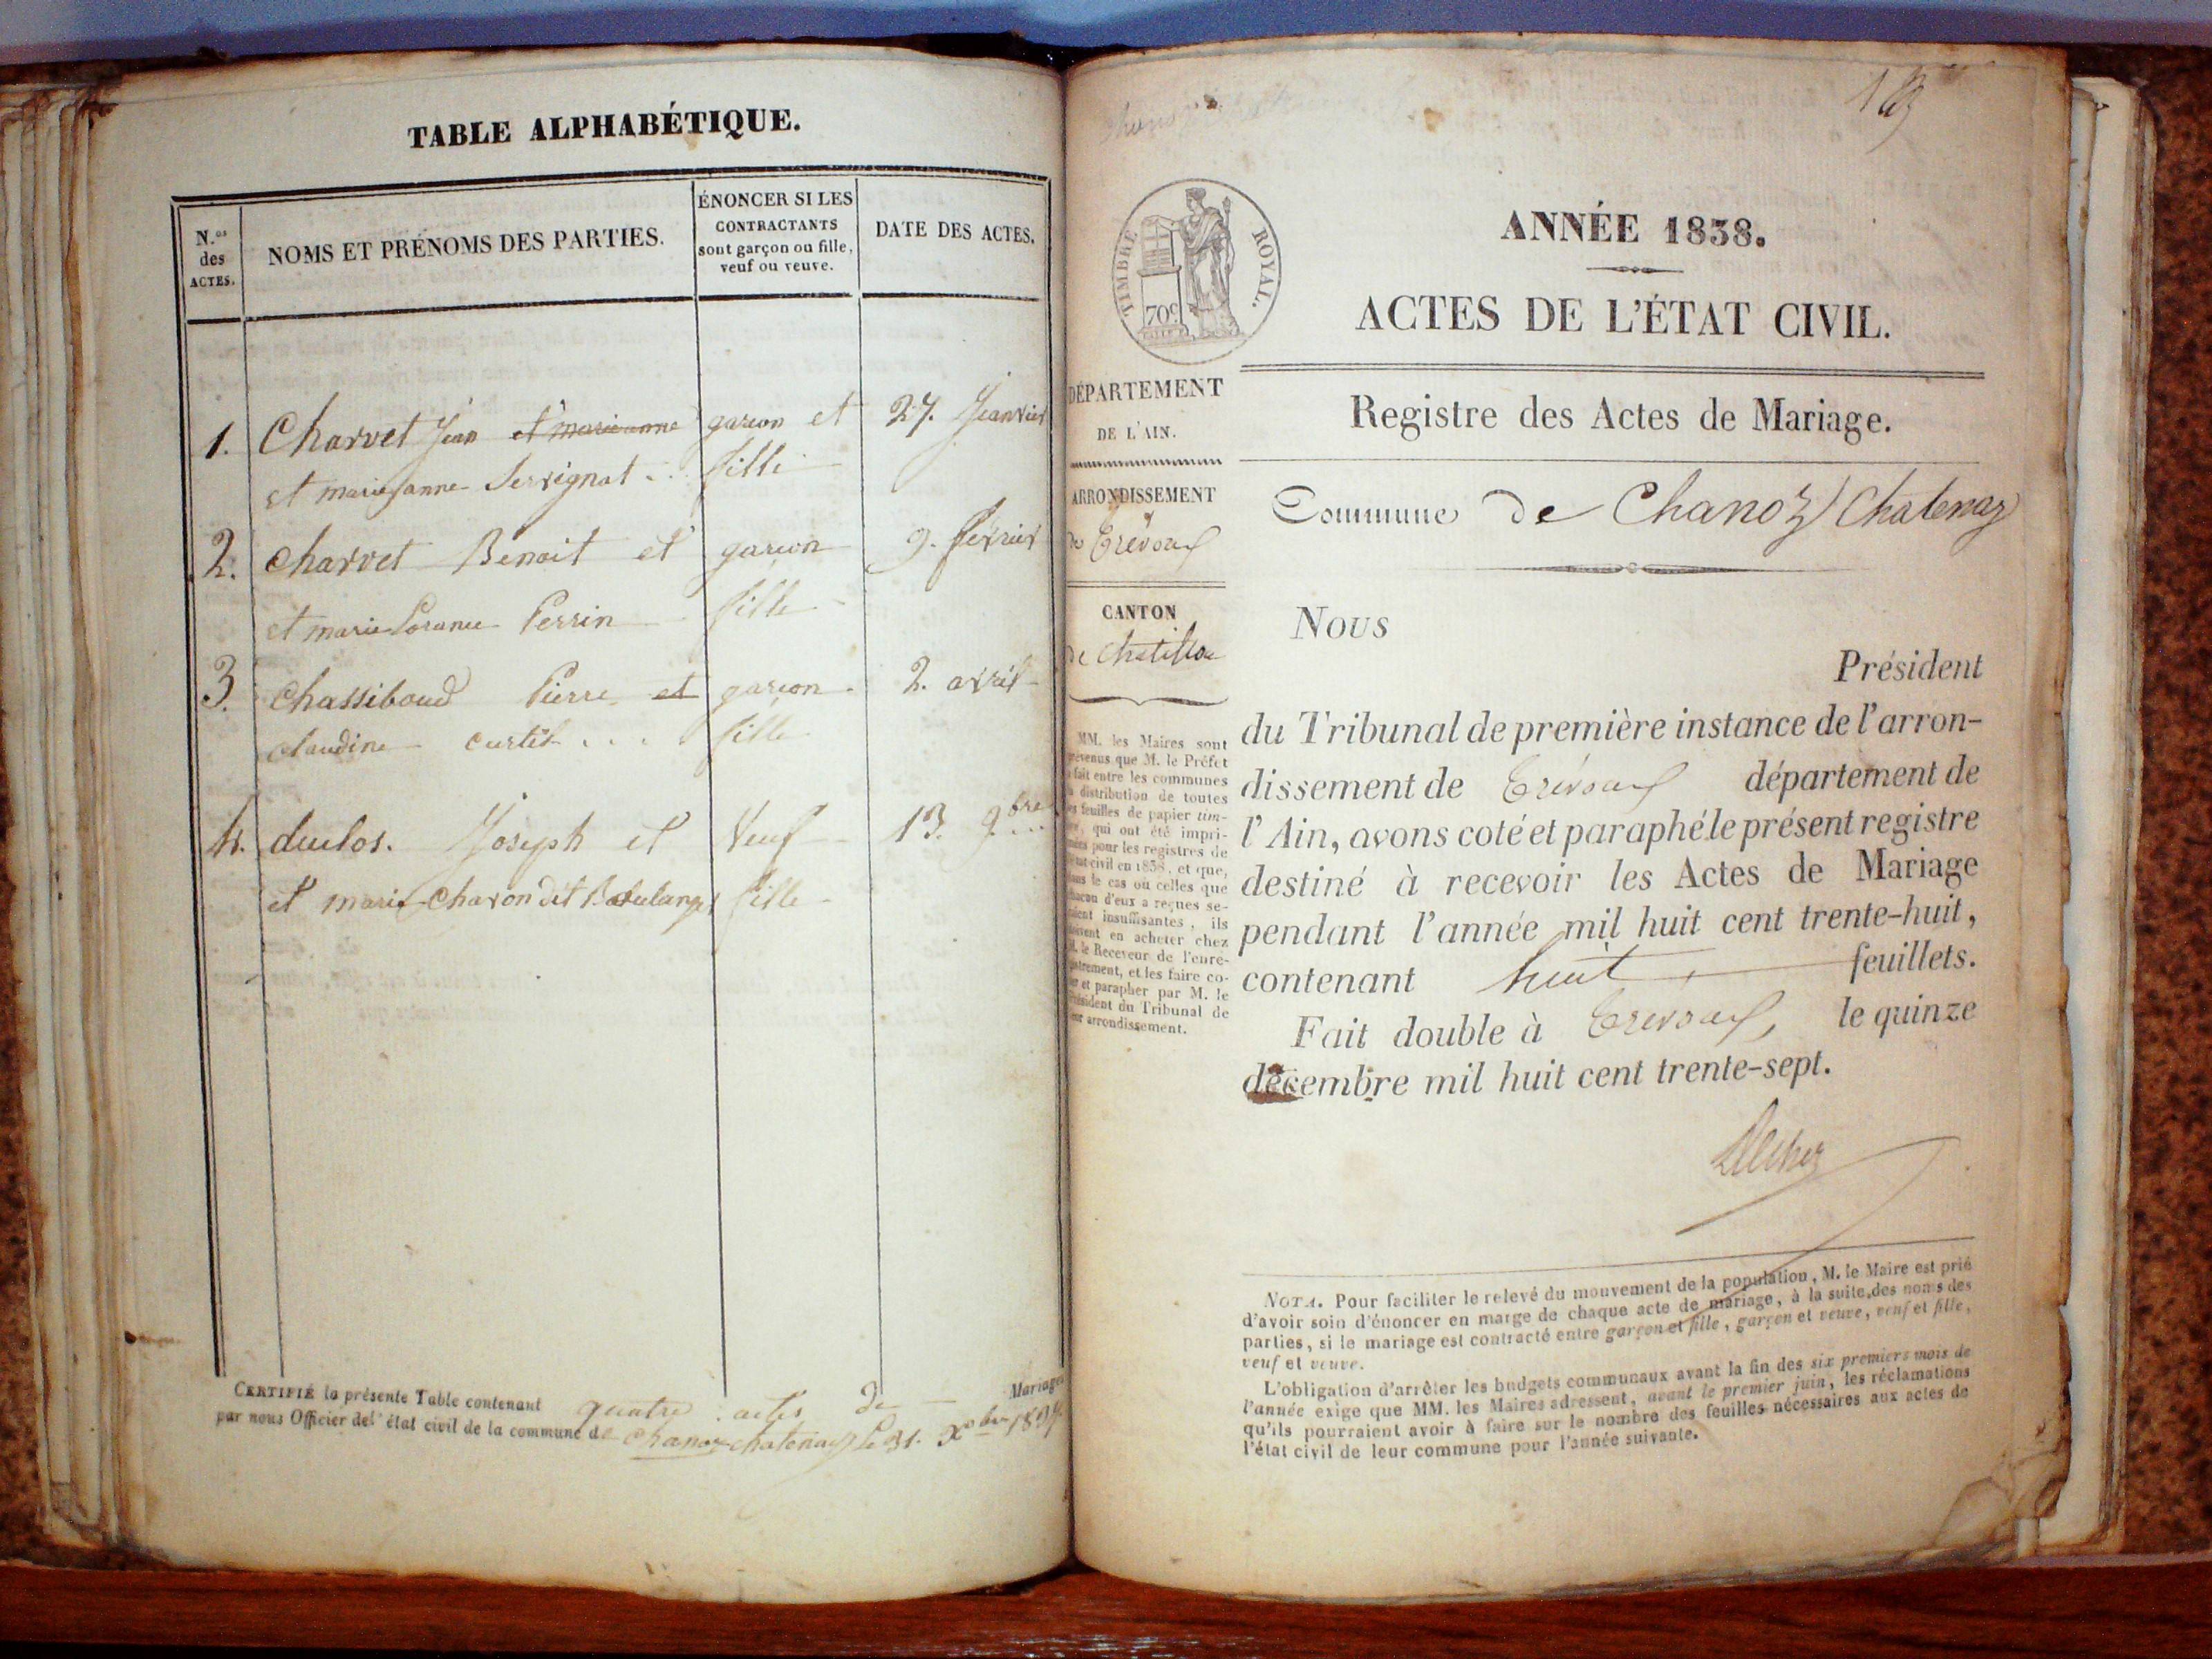 TABLE ALPHABÉTIQUE.
N.os des ACTES.
NOMS ET PRÉNOMS DES PARTIES.
ÉNONCER SI LES
CONTRACTANTS
sont garçon ou fille,
veuf ou veuve.
DATE DES ACTES.
1. Charvet Jean et marieanne garcon et 27. Jeanvier
et marieanne Servignat . . fille
2. charvet Benoit et garcon 9. fevrier
et marie Perrin fille
3. Chassiboud Pierre et garcon 2. avril
claudine curtil . . . fille
4. duclos. Joseph et Veuf 13. 9bre
et marie Charon dit fille
CERTIFIÉ la présente Table contenant quatre actes de Mariages
par nous Officier de l'état civil de la commune de Chanoz chatenay le 31. Xbre
TIMBRE ROYAL.
70c
DÉPARTEMENT
DE L'AIN.
ARRONDISSEMENT
de Trévoux
CANTON
de Chatillon
MM. les Maires sont
prévenus que M. le Préfet
a fait entre les communes
la distribution de toutes
les feuilles de papier tim-
bré, qui ont été impri-
mées pour les registres de
l'état civil en 1838, et que,
dans le cas où celles que
chacun d'eux a reçues se-
raient insuffisantes, ils
doivent en acheter chez
M. le Receveur de l'enre-
gistrement, et les faire co-
ter et parapher par M. le
Président du Tribunal de
leur arrondissement.
ANNÉE 1838.
ACTES DE L'ÉTAT CIVIL.
Registre des Actes de Mariage.
Commune de Chanoz Chatenay
Nous
Président
du Tribunal de première instance de l'arron-
dissement de Trévoux département de
l'Ain, avons coté et paraphé le présent registre
destiné à recevoir les Actes de Mariage
pendant l'année mil huit cent trente-huit,
contenant huit feuillets.
Fait double à Trevoux, le quinze
décembre mil huit cent trente-sept.
NOTA. Pour faciliter le relevé du mouvement de la population, M. le Maire est prié
d'avoir soin d'énoncer en marge de chaque acte de mariage, à la suite des noms des
parties, si le mariage est contracté entre garçon et fille, garçon et veuve, veuf et fille,
veuf et veuve.
L'obligation d'arrêter les budgets communaux avant la fin des six premiers mois de
l'année exige que MM. les Maires adressent, avant le premier juin, les réclamations
qu'ils pourraient avoir à faire sur le nombre des feuilles nécessaires aux actes de
l'état civil de leur commune pour l'année suivante.